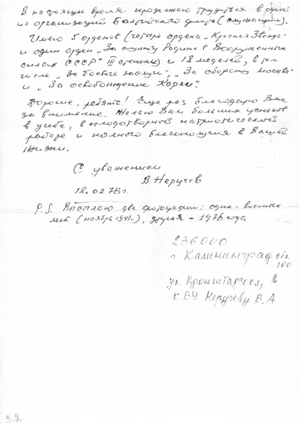 В настоящее время продолжаю трудиться в одной
из организаций Балтийского флота (служащим).
Имею 5 орденов (четыре ордена „Красная Звезда"
и один орден „За службу Родине в Вооруженных
силах СССР" III степени) и 18 медалей, в том
числе „За боевые заслуги", „За оборону Москвы"
и „За освобождение Кореи".
Хорошие, ребята! Еще раз благодарю Вас
за внимание. Желаю Вам больших успехов
в учебе, в плодотворной патриотической
работе и полного благополучия в Вашей
жизни.
С уважением
18.02.78г.
P.S. Высылаю две фотографии: одна - военных
лет (ноябрь 1941г.), другая - 1976 года
236000
г. Калининград обл.
ул. Кронштадтская,
В.А